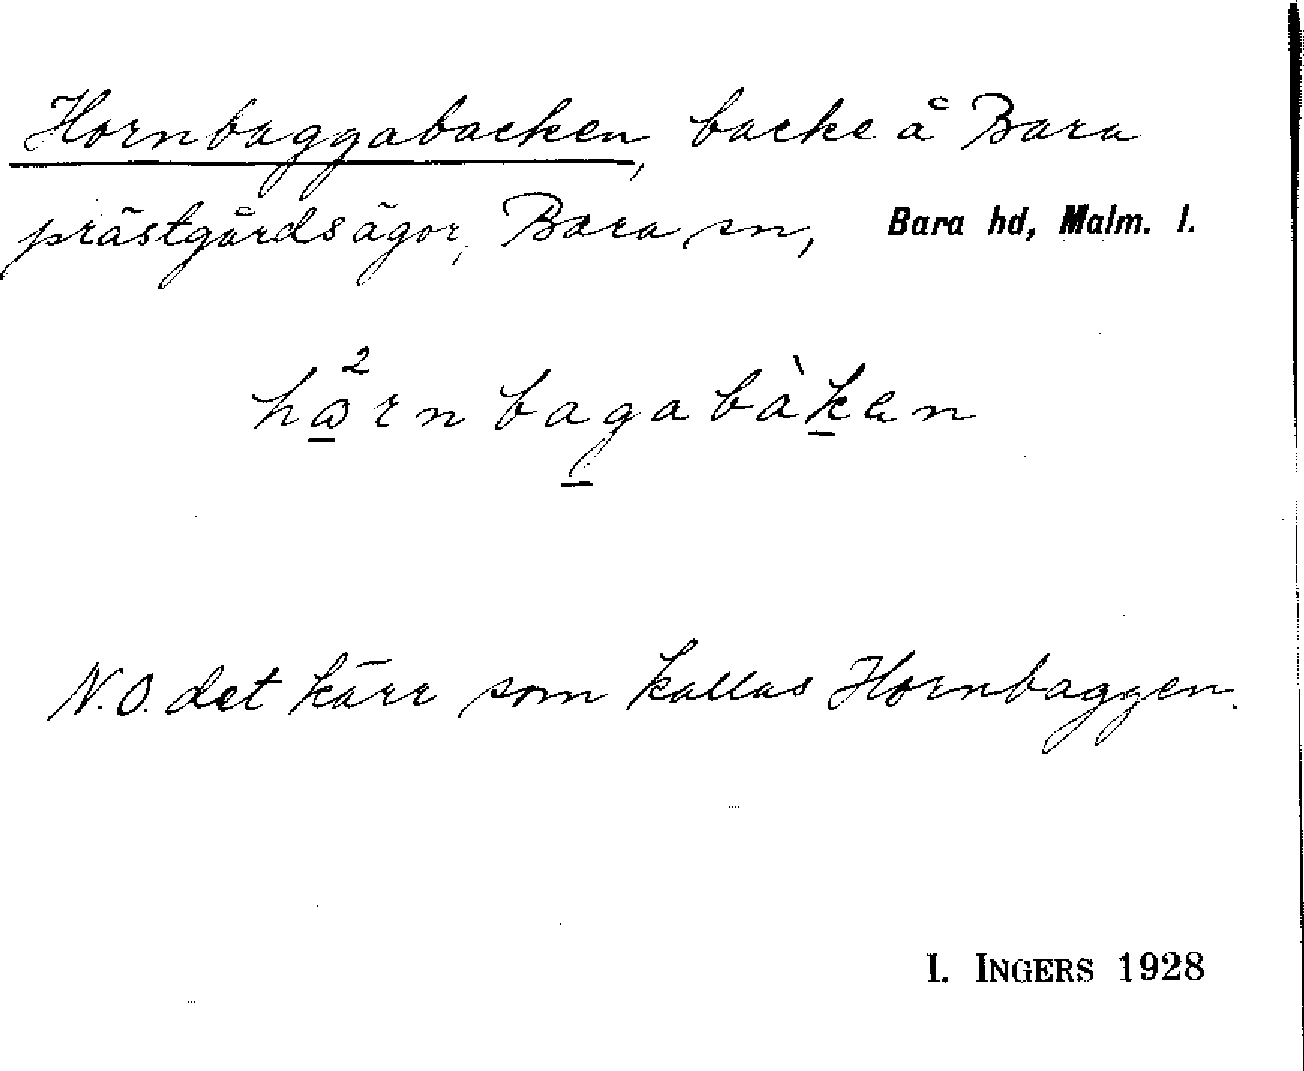 Hornbaggabacken, backe å Bara
prästgårdsägor, Bara sn, Bara hd, Malm. l.
N.O. det kärr som kallas Hornbaggen.
I. INGERS 1928